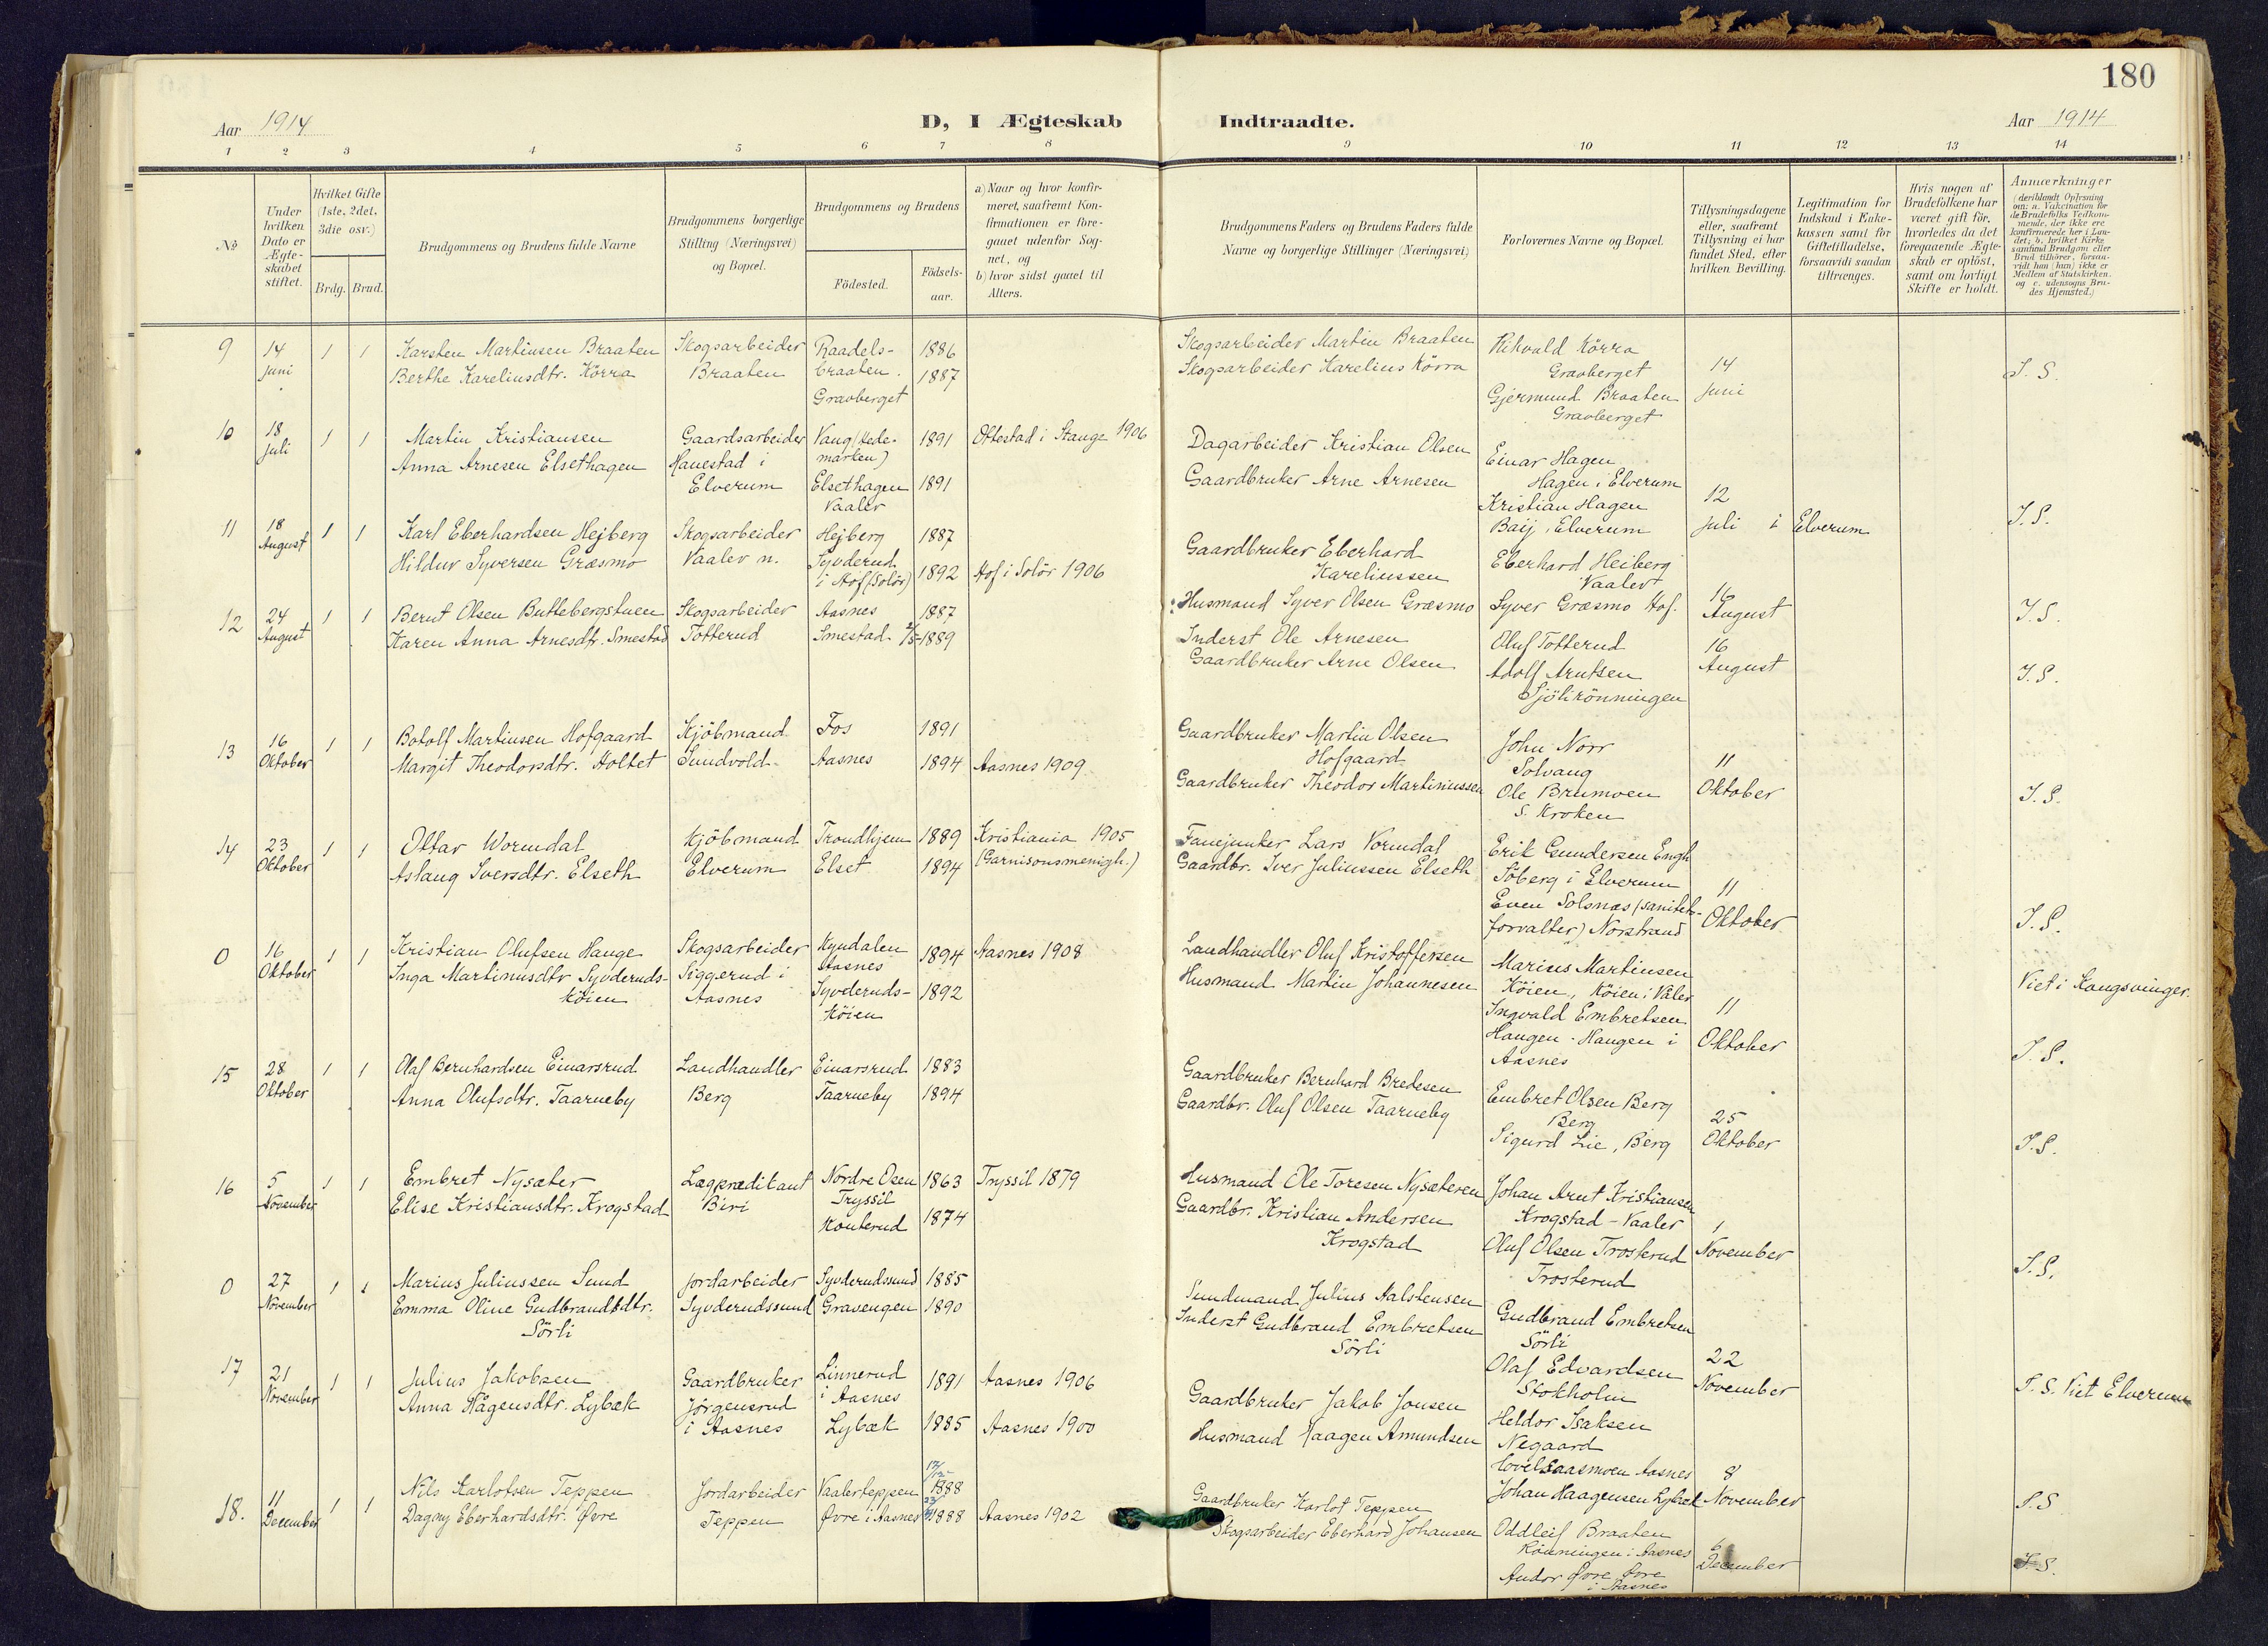 180
Aar 1914
D, I Ægteskab Indtraadte.
Aar 1914
1 2 3 4 5 6 7 8 9 10 11 12 13 14
No.
Under hvilken Dato er Ægteskabet stiftet.
Hvilket Gifte (1ste, 2det, 3die osv.)
Brdg. Brud.
Brudgommens og Brudens fulde Navne
Brudgommens borgerlige Stilling (Næringsvei) og Bopæl.
Brudgommens og Brudens
Födested.
Födselsaar.
a) Naar og hvor konfirmeret, saafremt Konfirmationen er foregaaet udenfor Sognet, og
b) hvor sidst gaaet til Alters.
Brudgommens Faders og Brudens Faders fulde Navne og borgerlige Stillinger (Næringsvei)
Forlovernes Navne og Bopæl.
Tillysningsdagene eller, saafremt Tillysning ei har fundet Sted, efter hvilken Bevilling.
Legitimation for Indskud i Enkekassen samt for Giftetilladelse, forsaavidt saadan tiltrænges.
Hvis nogen af Brudefolkene har været gift før, hvorledes da det foregaaende Ægteskab er opløst, samt om lovligt Skifte er holdt.
Anmærkninger
(deriblandt Oplysning om: a. Vakcination for de Brudefolks Vedkommende, der ikke ere konfirmerede her i Landet; b. hvilket Kirkesamfund Brudgom eller Brud tilhører, forsaavidt han (hun) ikke er Medlem af Statskirken, og c. udensogns Brudes Hjemsted.)
9 14 Juni 1 1
Karsten Martinsen Braaten
Berthe Karelinsdtr. Körra
Skogsarbeider
Braaten
Raadels-
braaten.
Gravberget
1886
1887
Skogsarbeider Martin Braaten
Skogsarbeider Karelius Körra
Rikvald Körra
Gravberget
Gjermund Braaten
Gravberget
14
Juni
I. S.
10 18 Juli 1 1
Martin Kristiansen
Anna Arnesen Elsethagen
Gaardsarbeider
Hanestad i
Elverum
Vang (Hede-
marken)
Elsethagen
Vaaler
1891
1891
Ottestad i Stange 1906
Dagarbeider Kristian Olsen
Gaardbruker Arne Arnesen
Einar Hagen
Hagen i Elverum
Kristian Hagen
Baij, Elverum
12
Juli i Elverum
I. S.
11 18 August 1 1
Karl Eberhardsen Hejberg
Hildur Syversen Græsmo
Skogsarbeider
Vaaler n.
Hejberg
Syverud
i Hof (Solör)
1887
1892
Hof i Solör 1906
Gaardbruker Eberhard
Kareliussen
Husmand Syver Olsen Græsmo
Eberhard Heiberg
Vaaler
Syver Græsmo Hof.
16
August
I. S.
12 24 August 1 1
Bernt Olsen Buttebergstuen
Karen Anna Arnesdtr. Smestad
Skogsarbeider
Totterud
Aasnes
Smestad
1887
1889
Inderst Ole Arnesen
Gaardbruker Arne Olsen
Oluf Totterud
Adolf Arntsen
Sjölirönningen
16
August
I. S.
13 16 Oktober 1 1
Botolf Martinsen Hofgaard
Margit Theodorsdtr. Holtet
Kjöbmand
Sundvold
Fos
Aasnes
1891
1894
Aasnes 1909
Gaardbruker Martin Olsen
Hofgaard
Gaardbruker Theodor Martiniussen
John Norr
Solvang
Ole Brumoen
S. Kroken
11
Oktober
I. S.
14 23 Oktober 1 1
Ottar Wormdal
Aslaug Iversdtr. Elseth
Kjöbmand
Elverum
Trondhjem
Elset
1889
1894
Kristiania 1905
(Garnisonsmenigh.)
Fanejunker Lars Vormdal
Gaardbr. Iver Juliussen Elseth
Erik Gundersen Engh
Söberg i Elverum
Even Solsnæs (sanitets-
forvalter) Norstrand
11
Oktober
I. S.
0 16 Oktober 1 1
Kristian Olufsen Hauge
Inga Martinusdtr Syvderuds-
köien
Skogsarbeider
Siggerud i
Aasnes
Kyndalen
Aasnes
Syvderuds-
köien
1894
1892
Aasnes 1908
Landhandler Oluf Kristoffersen
Husmand Martin Johannesen
Marius Martinsen
Köien, Köien i Våler
Ingvald Embretsen
Haugen - Haugen i
Aasnes
11
Oktober
Viet i Kongsvinger.
I. S.
15 28 Oktober 1 1
Olaf Bernhardsen Einarsrud
Anna Olufsdtr. Taarneby
Landhandler
Berg
Einarsrud
Taarneby
1883
1894
Gaardbruker Bernhard Bredesen
Gaardbr. Oluf Olsen Taarneby
Embret Olsen Berg
Berg
Sigurd Lie, Berg
25
Oktober
I. S.
16 5 November 1 1
Embret Nysæter
Elise Kristiansdtr. Krogstad
Lægprædikant
Biri
Nordre Osen
Tryssil
Konterud
1863
1874
Tryssil 1879
Husmand Ole Toresen Nysæteren
Gaardbr. Kristian Andersen
Krogstad
Johan Arnt Kristiansen
Krogstad - Vaaler
Oluf Olsen Trosterud
Trosterud
1
November
I. S.
0 27 November 1 1
Marius Juliussen Sund
Emma Oline Gudbrandsdtr.
Sörli
Jordarbeider
Syvderudssund
Syvderudssund
Gravengen
1885
1890
Sundmand Julius Aalstensen
Inderst Gudbrand Embretsen
Sörli
Gudbrand Embretsen
Sörli
Olaf Edvardsen
Stokholm
22
November
I. S. Viet Elverum
17 21 November 1 1
Julius Jakobsen
Anna Hågensdtr. Lybæk
Gaardbruker
Jörgensrud
i Aasnes
Linnerud
i Aasnes
Lybæk
1891
1885
Aasnes 1906
Aasnes 1900
Gaardbruker Jakob Jonsen
Husmand Haagen Amundsen
Heldor Isaksen
Negaard
Hovelsaasmoen Aasnes
Johan Haagensen Lybæk
8
November
I. S
18. 11 December 1 1
Nils Karlotsen Teppen
Dagny Eberhardsdtr. Øvre
Jordarbeider
Teppen
Vaalerteppen
Øvre i Aasnes
1888
1888
Aasnes 1902
Gaardbruker Karlot Teppen
Skogsarbeider Eberhard Johansen
Oddleif Braaten
Rönningen i Aasnes
Andor Øvre Øvre
i Aasnes
6
December
I. S.